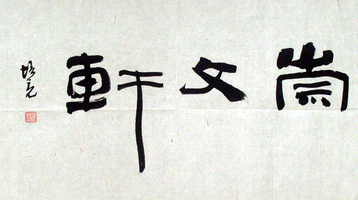 崇文軒
培元